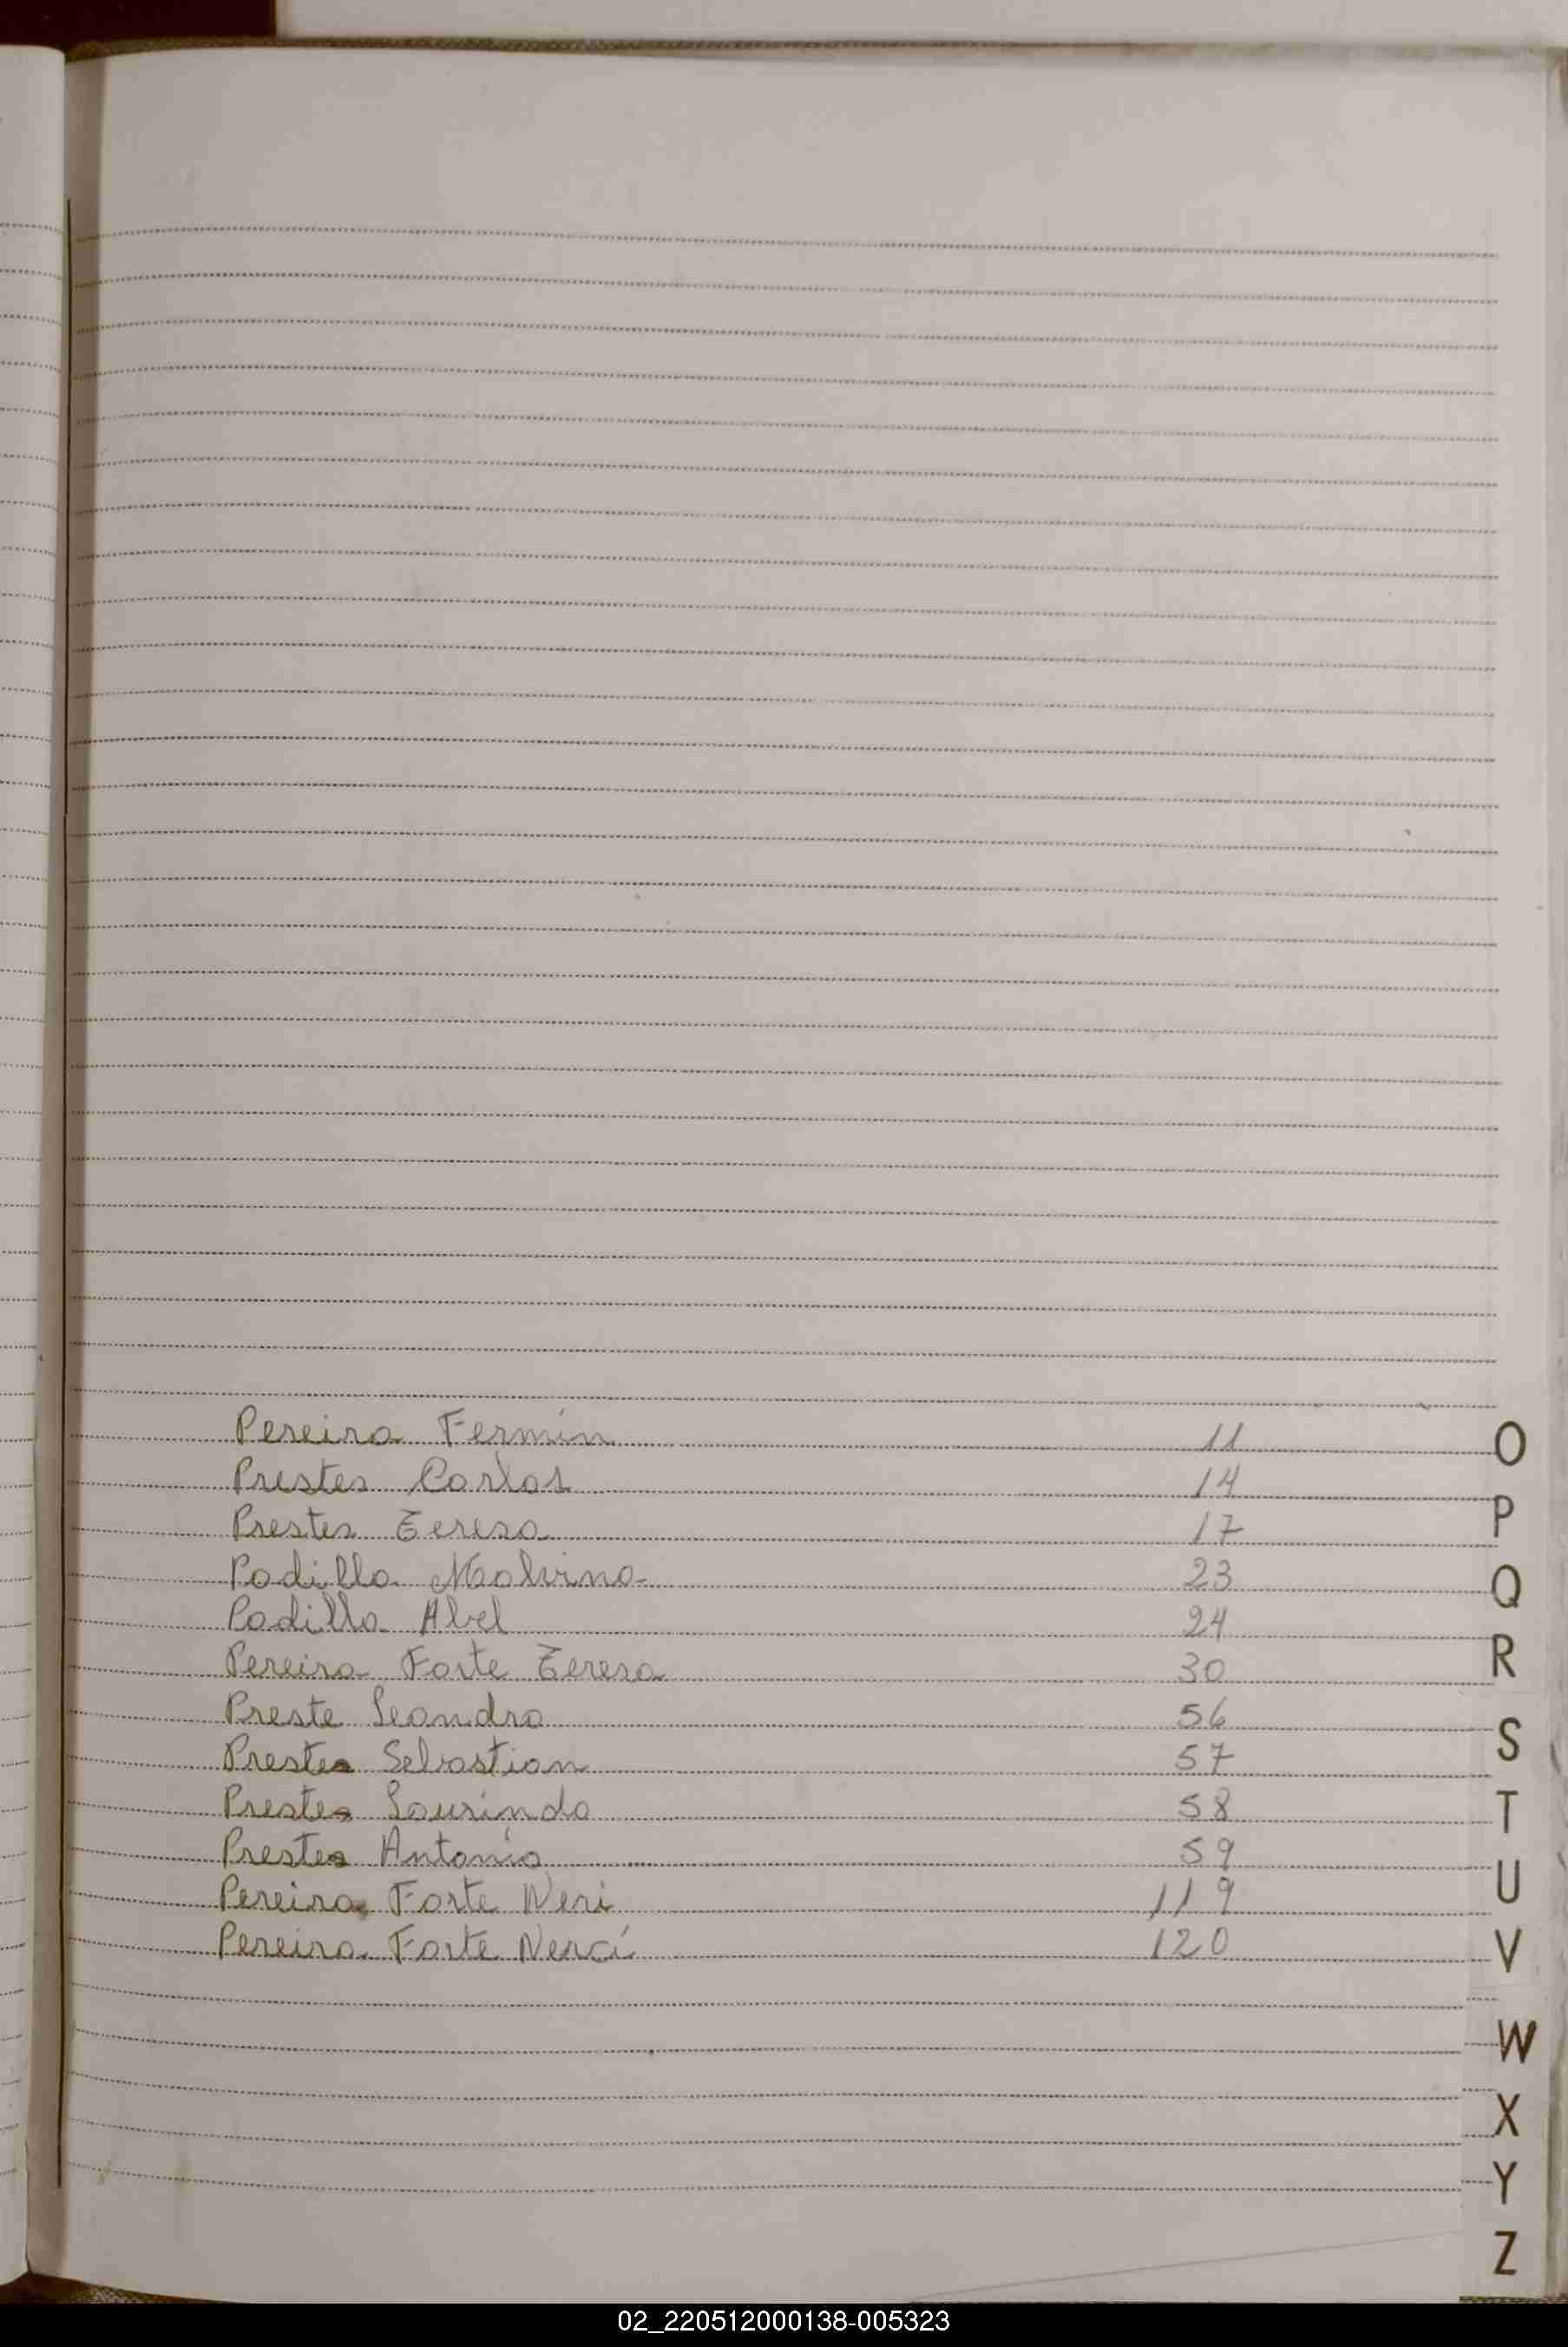 Pereira Fermín 11
Prestes Carlos 14
Prestes Teresa 17
Padilla Malvina 23
Padilla Abel 24
Pereira Forte Teresa 30
Preste Leandro 56
Prestes Sebastian 57
Prestes Laurindo 58
Prestes Antonio 59
Pereira Forte Neri 119
Pereira Forte Nercí 120
O
P
Q
R
S
T
U
V
W
X
Y
Z
02_220512000138-005323